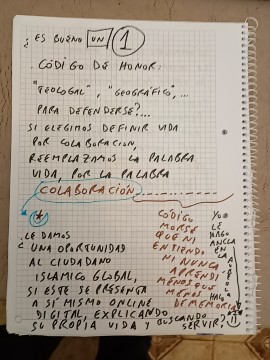 ¿ES BUENO UN 1
CÓDIGO DE HONOR:
"TEOLOGAL", "GEOGRÁFICO",...
PARA DEFENDERSE?...
SI ELEGIMOS DEFINIR VIDA
POR COLABORACIÓN,
REEMPLAZAMOS LA PALABRA
VIDA, POR LA PALABRA
COLABORACIÓN
*
¿LE DAMOS
UNA OPORTUNIDAD
AL CIUDADANO
ISLAMICO GLOBAL,
SI ESTE SE PRESENTA
A SÍ MISMO ONLINE
DIGITAL, EXPLICANDO
SU PROPIA VIDA Y BUSCANDO
SERVIR?
CÓDIGO
MORSE
QUE NI
ENTIENDO
NI NUNCA
APRENDÍ
MENOS QUE
MENOS
DE MEMORIA
YO
LE
HAGO
ANCLA
EN LA
HALO
11